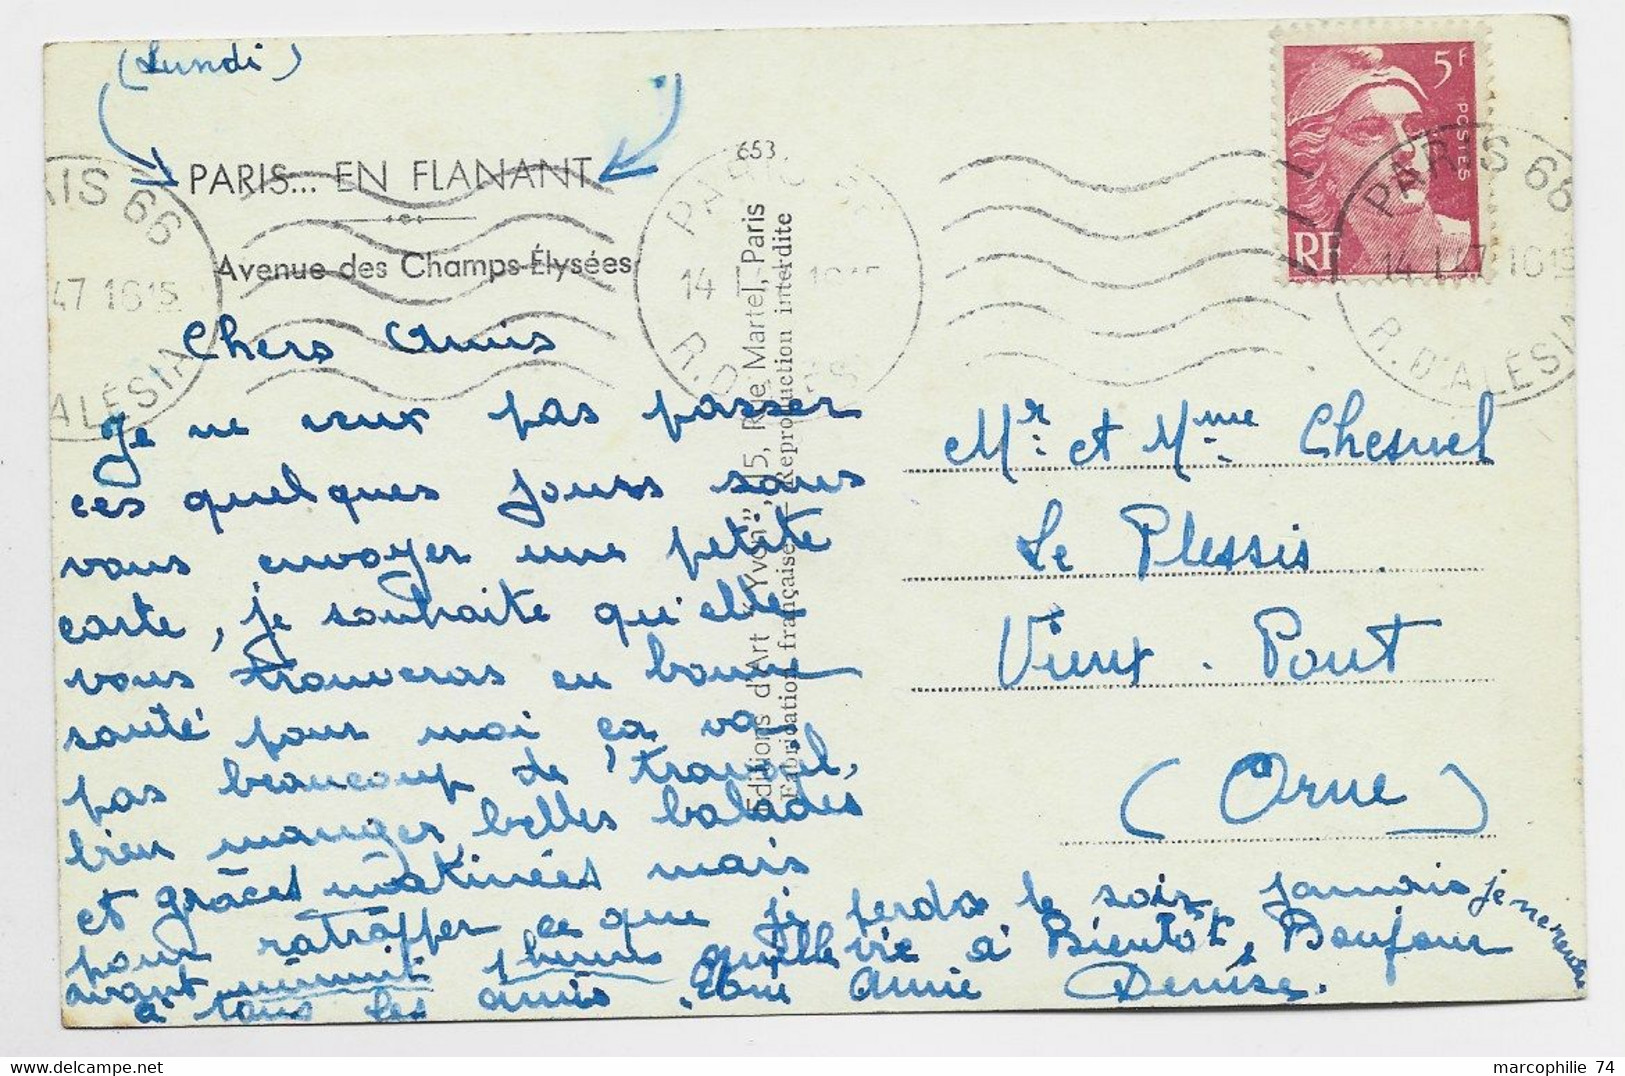 (Lundi)
PARIS... EN FLANANT
Avenue des Champs-Élysées
653
Editions d'Art "Yvon", 15, Rue Martel, Paris
Fabrication française — Reproduction interdite
5F
POSTES
RF
PARIS 66
14 16 15
R. D'ALÉSIA
AIS 66
47 16 15
ALÉSIA
Chers Amis
Je ne veux pas passer
ces quelques jours sans
vous envoyer une petite
carte, je souhaite qu'elle
vous trouveras en bonne
santé pour moi ça va,
pas beaucoup de travail,
bien manger belles balades
et grâces matinées mais
pour ratrapper ce que je perds le soir jamais je ne rentre
avant minuit quelle vie à Bientôt, Bonjour
à tous les amis. Amie Denise.
Mr. et Mme Chesnel
Le Plessis
Vieux-Pont
(Orne)
marcophilie 74